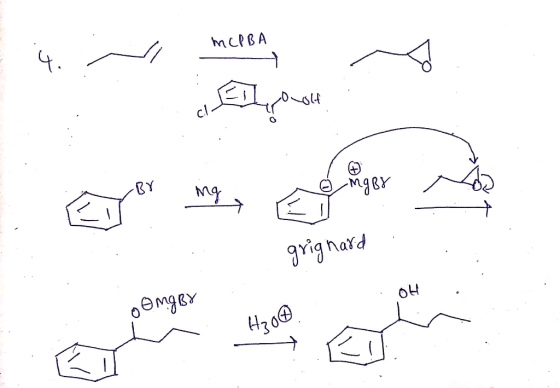 4. mCPBA
Cl O O-OH
O
Br Mg ⊖ ⊕ MgBr O
grignard
O⊖MgBr H3O⊕ OH